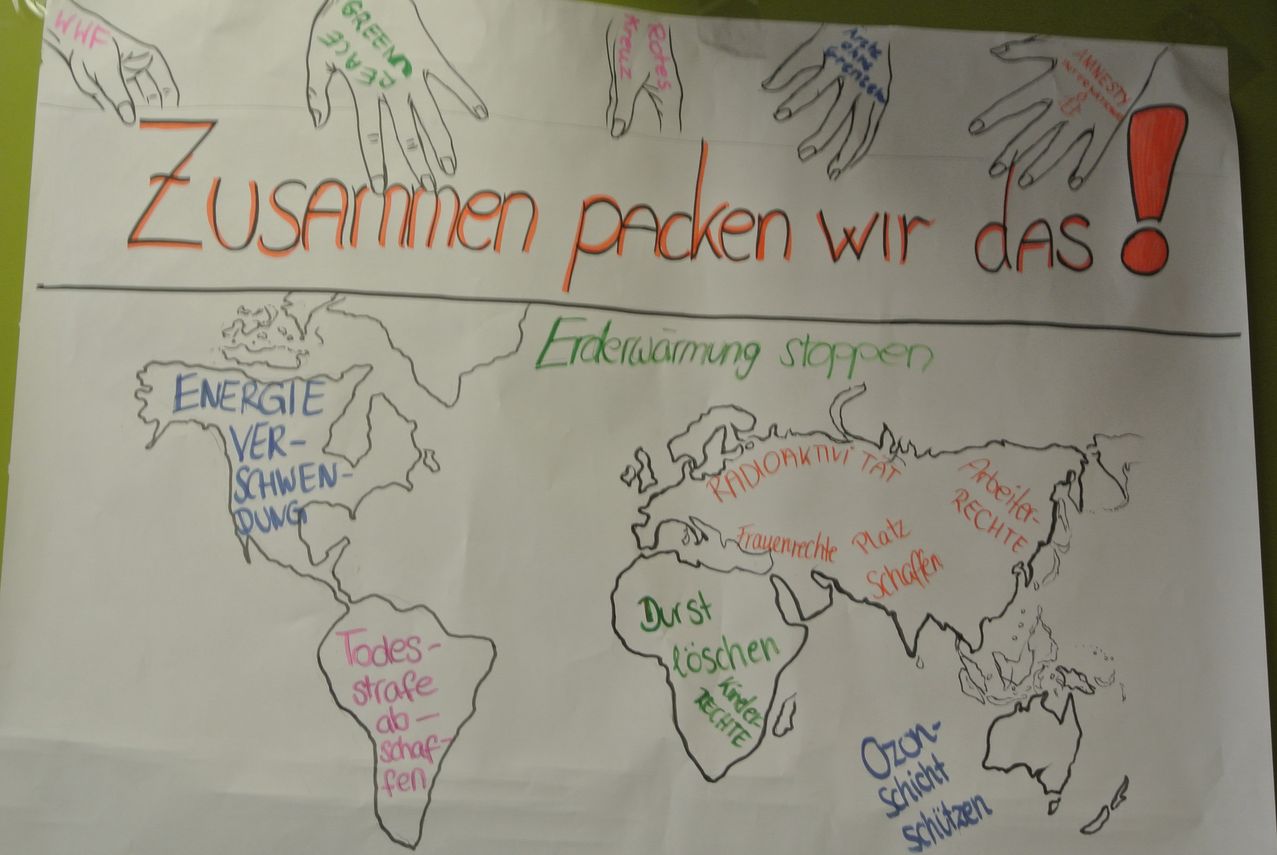 WWF
GREEN
PEACE
Rotes
Kreuz
Ärzte
ohne
Grenzen
AMNESTY
INTERNATIONAL
Zusammen packen wir das!
Erderwärmung stoppen
ENERGIE
VER-
SCHWEN-
DUNG
RADIOAKTIVITÄT
Arbeiter-
RECHTE
Frauenrechte
Platz
Schaffen
Durst
löschen
Kinder-
RECHTE
Todes-
strafe
ab-
schaf-
fen
Ozon-
Schicht
schützen